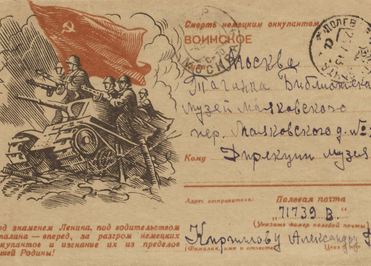 Смерть немецким оккупантам
ВОИНСКОЕ
Москва
Таганка Библиотека
музей Маяковского
пер. Маяковского д. №
Кому Дирекции музея
Адрес отправителя: Полевая почта
71739 В.
(Указать номер полевой почты)
Кириллову Александру
(Фамилия, имя и отчество)
од знаменем Ленина, под водительством
талина — вперед, за разгром немецких
купантов и изгнание их из пределов
шей Родины!